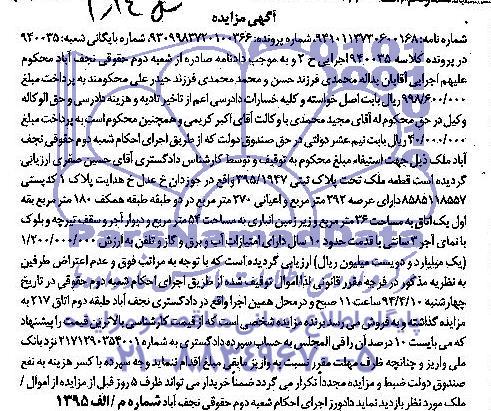 آگهی مزایده
شماره نامه: ۹۴۱۰۱۱۳۷۳۰۶۰۰۱۶۸ شماره پرونده: ۹۳۰۹۹۸۳۷۳۰۱۰۰۳۶۶ شماره بایگانی شعبه: ۹۴۰۰۳۵
در پرونده کلاسه ۹۴۰۰۳۵ اجرایی ح ۲ و به موجب دادنامه صادره از شعبه دوم حقوقی نجف آباد محکوم
علیهم اجرایی آقایان یداله محمدی فرزند حسن و محمد محمدی فرزند حیدر علی محکومند به پرداخت مبلغ
۹۹۸/۶۰۰/۰۰۰ ریال بابت اصل خواسته و کلیه خسارات دادرسی اعم از تاخیر تادیه و هزینه دادرسی و حق الوکاله
وکیل در حق محکوم له آقای مجید محمدی با وکالت آقای اکبر کریمی و همچنین محکوم است به پرداخت مبلغ
۴۰/۰۰۰/۰۰۰ ریال بابت نیم عشر دولتی در حق صندوق دولت که از طریق اجرای احکام شعبه دوم حقوقی نجف
آباد ملک ذیل جهت استیفاء مبلغ محکوم به توقیف و توسط کارشناس دادگستری آقای حسین صفری ارزیابی
گردیده است قطعه ملک تحت پلاک ثبتی ۳۹۵/۱۹۴۷ واقع در جوزدان خ عدل خ هدایت پلاک ۱ کدپستی
۸۵۸۵۱۱۸۵۵۷ دارای عرصه ۳۹۲ متر مربع و اعیانی ۲۷۰ متر مربع در دو طبقه طبقه همکف ۱۸۰ متر مربع بقه
اول یک اتاق به مساحت ۳۶ متر مربع و زیر زمین انباری به مساحت ۵۴ متر مربع و دیوار آجر و سقف تیرچه و بلوک
با نمای آجر ۳ سانتی با قدمت حدود ۱۰ سال دارای امتیازات آب و برق و گاز و تلفن به ارزش ۱/۲۰۰/۰۰۰/۰۰۰
(یک میلیارد و دویست میلیون ریال) ارزیابی گردیده است که با توجه به مراتب فوق و عدم اعتراض طرفین
به نظریه مذکور در فرجه مقرر قانونی لذا اموال توقیف شده از طریق اجرای احکام شعبه دوم حقوقی در تاریخ
چهارشنبه ۹۴/۴/۱۰ ساعت ۱۱ صبح و در محل همین اجرا واقع در دادگستری نجف آباد طبقه دوم اتاق ۲۱۷ به
مزایده گذاشته و به فروش می رسد برنده مزایده شخصی است که از قیمت کارشناسی بالاترین قیمت را پیشنهاد
که می بایست ۱۰ درصد آن رافی المجلس به حساب سپرده دادگستری به شماره ۲۱۷۱۲۹۰۳۵۴۰۰۱ نزد بانک
ملی واریز و چنانچه ظرف مهلت مقرر نسبت به واریز مابقی مبلغ اقدام ننماید وجه سپرده با کسر هزینه به نفع
صندوق دولت ضبط و مزایده مجددا تکرار می گردد ضمنا خریدار می تواند ظرف ۵ روز قبل از مزایده از اموال /
ملک مورد نظر بازدید نماید دادورز اجرای احکام شعبه دوم حقوقی نجف آباد شماره م / الف ۱۳۹۵